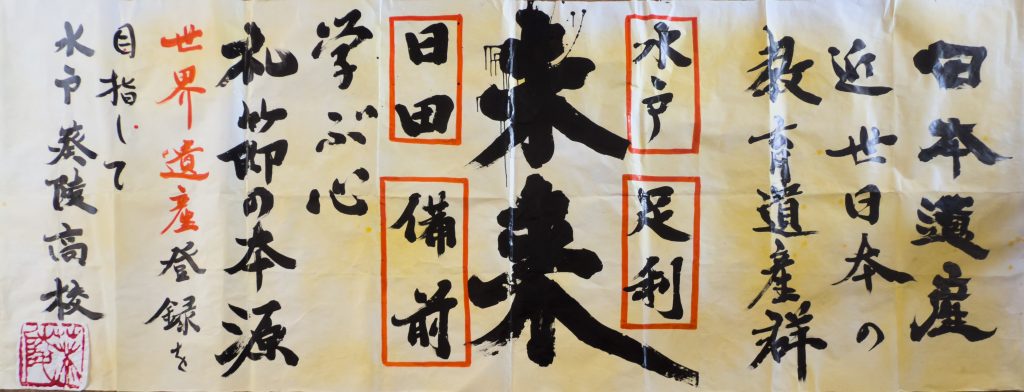 日本遺産
近世日本の
教育遺産群
水戸
足利
未来
日田
備前
学ぶ心
礼節の本源
世界遺産登録を
目指して
水戸葵陵高校
葵陵